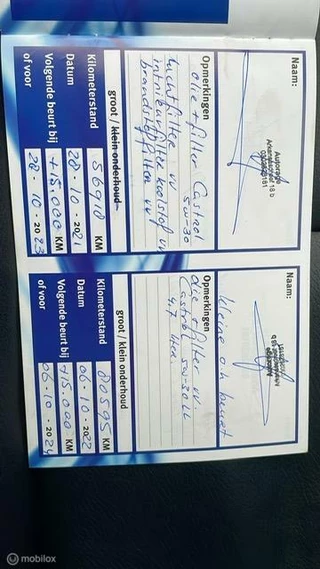 Naam:
Opmerkingen
olie + filter Castrol
5W-30
luchtfilter vv
interieurfilter koolstof vv
brandstoffilter vv
groot / klein onderhoud
Kilometerstand KM
Datum 28-10-2021
Volgende beurt bij +15.000 KM
of voor 28-10-2023
Naam:
kleine o.h beurt
Opmerkingen
olie + filter vv
Castrol 5W-30 LL
4,7 liter
groot / klein onderhoud
Kilometerstand 80595 KM
Datum 06-10-2022
Volgende beurt bij +15.000 KM
of voor 06-10-2024
mobilox